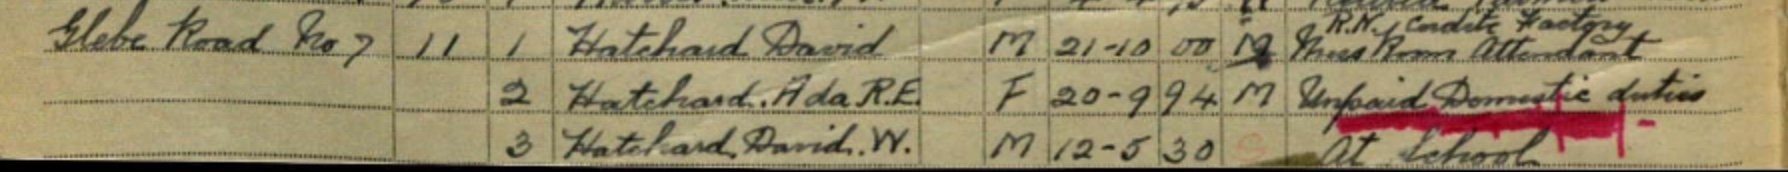 R.N. Cordite Factory
Glebe Road No 7 11 1 Hatchard David M 21-10 00 M Mess Room Attendant
2 Hatchard. Ada R.E. F 20-9 94 M Unpaid Domestic duties
3 Hatchard. David. W. M 12-5 30 S At School